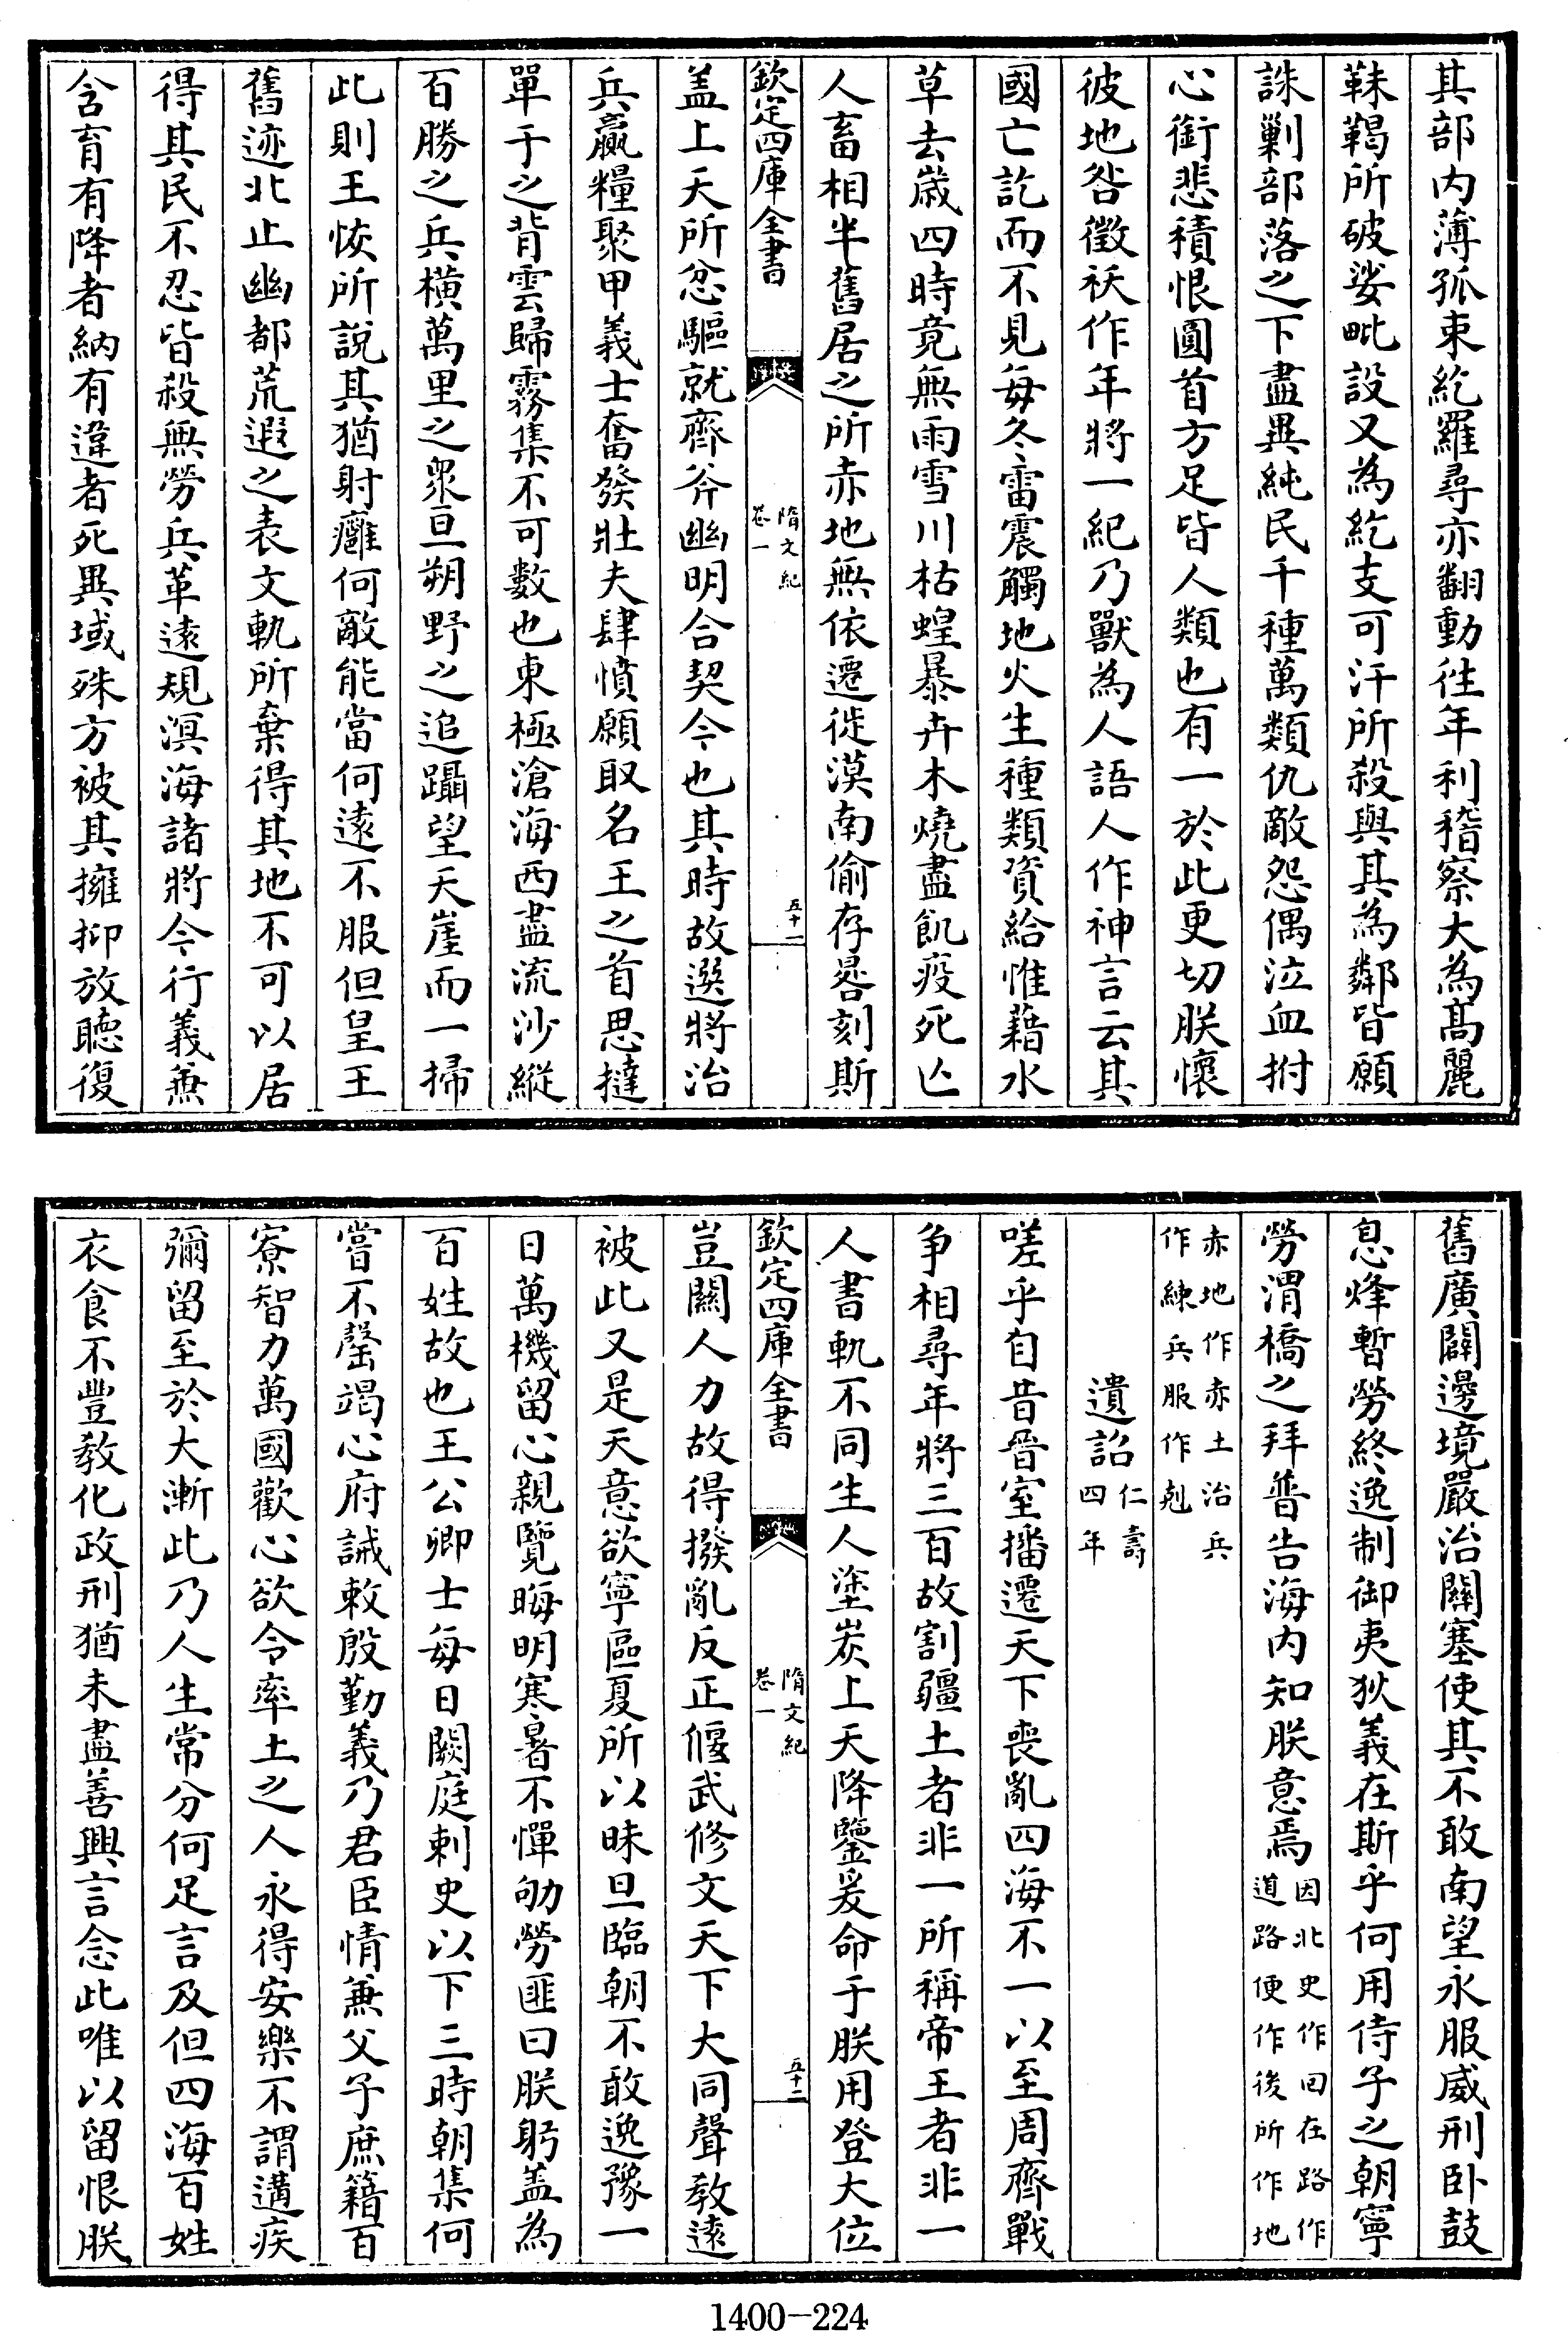 其部内薄孤束紇羅尋亦翻動徃年利稽察大為髙麗
靺鞨所破娑毗設又為紇支可汗所殺與其為鄰皆願
誅剿部落之下盡異純民千種萬類仇敵怨偶泣血拊
心銜悲積恨圓首方足皆人類也有一於此更切朕懷
彼地咎徵祅作年將一紀乃獸為人語人作神言云其
國亡訖而不見每冬雷震觸地火生種類資給惟藉水
草去嵗四時竟無雨雪川枯蝗暴卉木燒盡飢疫死亡
人畜相半舊居之所赤地無依遷徙漠南偷存晷刻斯
欽定四庫全書
隋文紀
卷一
五十一
盖上天所忿驅就齊斧幽明合契今也其時故選將治
兵贏糧聚甲義士奮發壯夫肆憤願取名王之首思撻
單于之背雲歸霧集不可數也東極滄海西盡流沙縱
百勝之兵橫萬里之衆亘朔野之追躡望天崖而一掃
此則王恢所說其猶射癰何敵能當何遠不服但皇王
舊迹北止幽都荒遐之表文軌所棄得其地不可以居
得其民不忍皆殺無勞兵革逺規溟海諸將今行義兼
含育有降者納有違者死異域殊方被其擁抑放聽復
舊廣闢邊境嚴治闗塞使其不敢南望永服威刑卧鼓
息烽暫勞終逸制御夷狄義在斯乎何用侍子之朝寧
勞渭橋之拜普告海内知朕意焉因北史作田在路作
道路便作後所作地
赤地作赤土治兵
作練兵服作剋
遺詔仁壽
四年
嗟乎自昔晉室播遷天下喪亂四海不一以至周齊戰
争相尋年將三百故割疆土者非一所稱帝王者非一
人書軌不同生人塗炭上天降鑒爰命于朕用登大位
欽定四庫全書
隋文紀
卷一
五十二
豈闗人力故得撥亂反正偃武修文天下大同聲敎逺
被此又是天意欲寧區夏所以昧旦臨朝不敢逸豫一
日萬機留心親覽晦明寒暑不憚劬勞匪曰朕躬盖為
百姓故也王公卿士每日闕庭刺史以下三時朝集何
嘗不罄竭心府誡敕殷勤義乃君臣情兼父子庶籍百
寮智力萬國歡心欲令率土之人永得安樂不謂遘疾
彌留至於大漸此乃人生常分何足言及但四海百姓
衣食不豐敎化政刑猶未盡善興言念此唯以留恨朕
1400-224